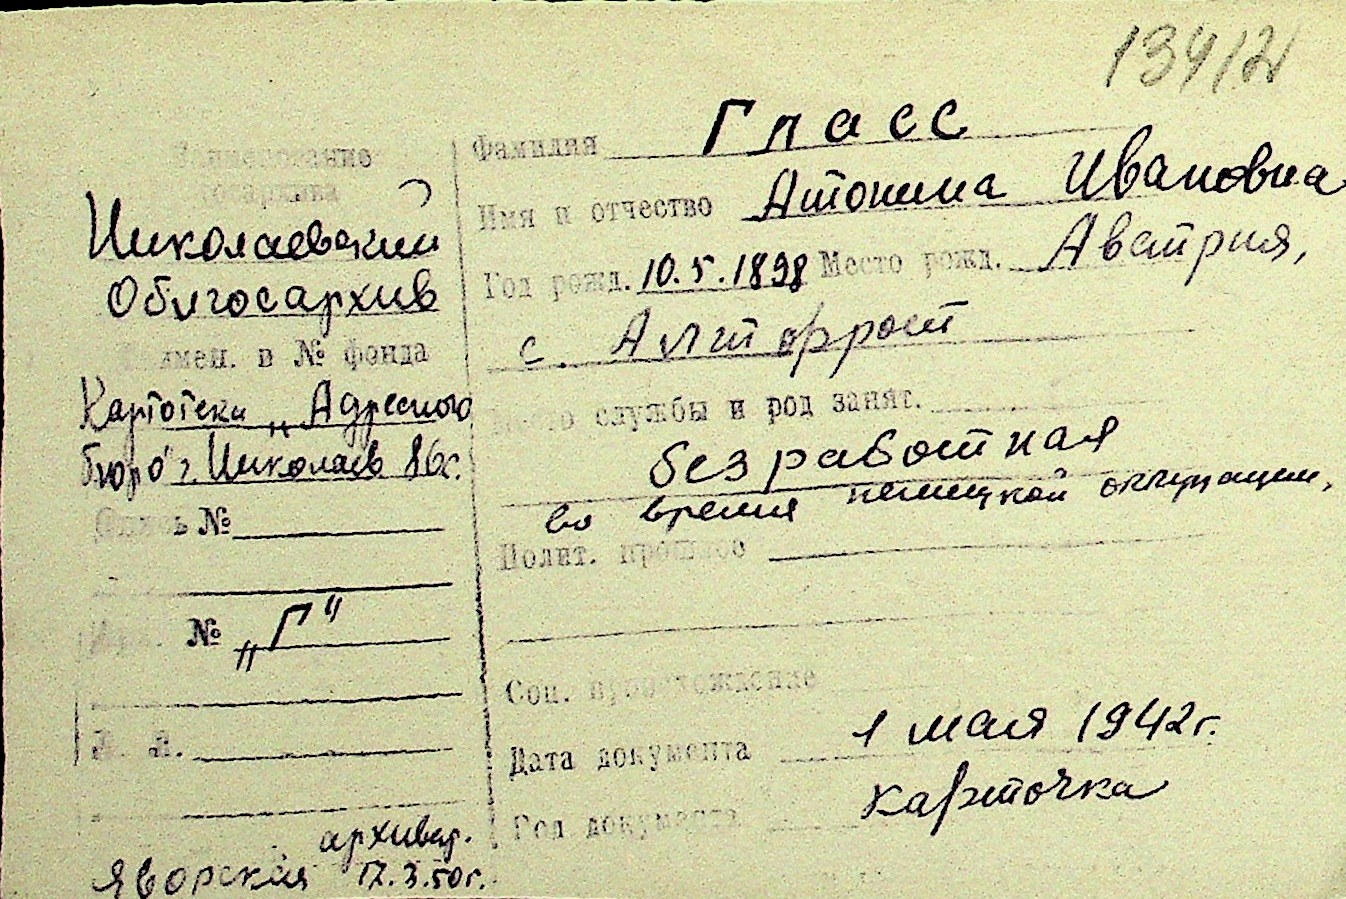 13412
Наименование
госархива
Николаевский
Облгосархив
Наимен. в № фонда
Картотека „Адресного
бюро" г. Николаев
Опись №
№ „Г"
Л. Л.
архивар.
Яворская 17.3.50г.
Фамилия Гласс
Имя и отчество Атонина Ивановна
Год рожд. 10.5.1898 Место рожд. Австрия,
с. Алтофрост
Место службы и род занят.
безработная
во время немецкой оккупации,
Полит. прошлое
Соц. происхождение
Дата документа 1 мая 1942г.
Год документа карточка